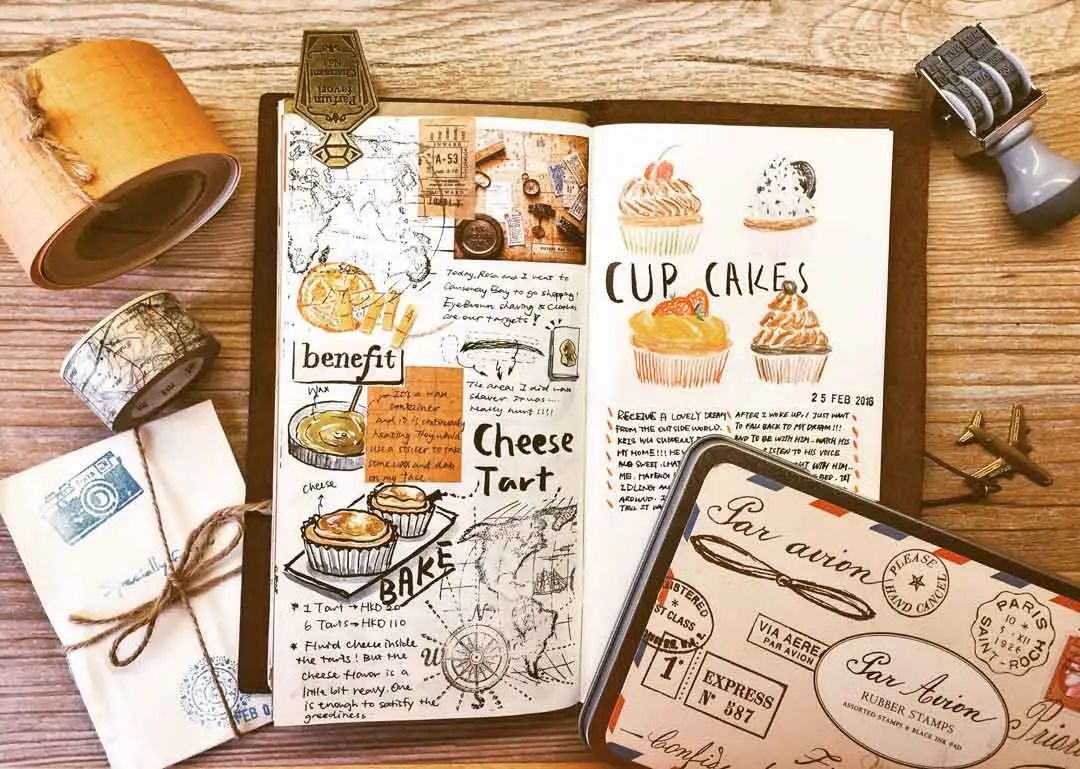 Parfum
favori
Chaussant
No.1
INWARD
A-53
Today, Rosa and I went to
Causeway Bay to go shopping!
Eyebrow shaving & Clothes
are our targets!
benefit
wax
It's a wax
container
and it is continuously
heating. They would
use a sticker to take
some wax and dab
on my face
The areas I did wax
shaver. It was...
really hurt!!!!
Cheese
Tart
cheese
BAKE
* 1 Tart → HKD 20
6 Tarts → HKD 110
* Fluid cheese inside
the tarts! But the
cheese flavor is a
little bit heavy. One
is enough to satisfy the
greediness.
N
W
CUP CAKES
25 FEB 2016
RECEIVE A LOVELY DREAM
FROM THE OUTSIDE WORLD.
KRIS WU SUDDENLY
MY HOME!!! HE
AND SWEET. CHAT
ME.
IDLING
AROUND. I
TELL
AFTER I WOKE UP, I JUST WANT
TO FALL BACK TO MY DREAM!!!
AND TO BE WITH HIM.. WATCH HIS
LISTEN TO HIS VOICE
WITH HIM...
BED.
FEB 0
Par avion
PLEASE
HAND CANCEL
PARIS
10 *
5 XII
1926
SAINT-ROCH
VIA AEREA
PAR AVION
1º
EXPRESS
Nº 587
Par Avion
RUBBER STAMPS
ASSORTED STAMPS & BLACK INK PAD